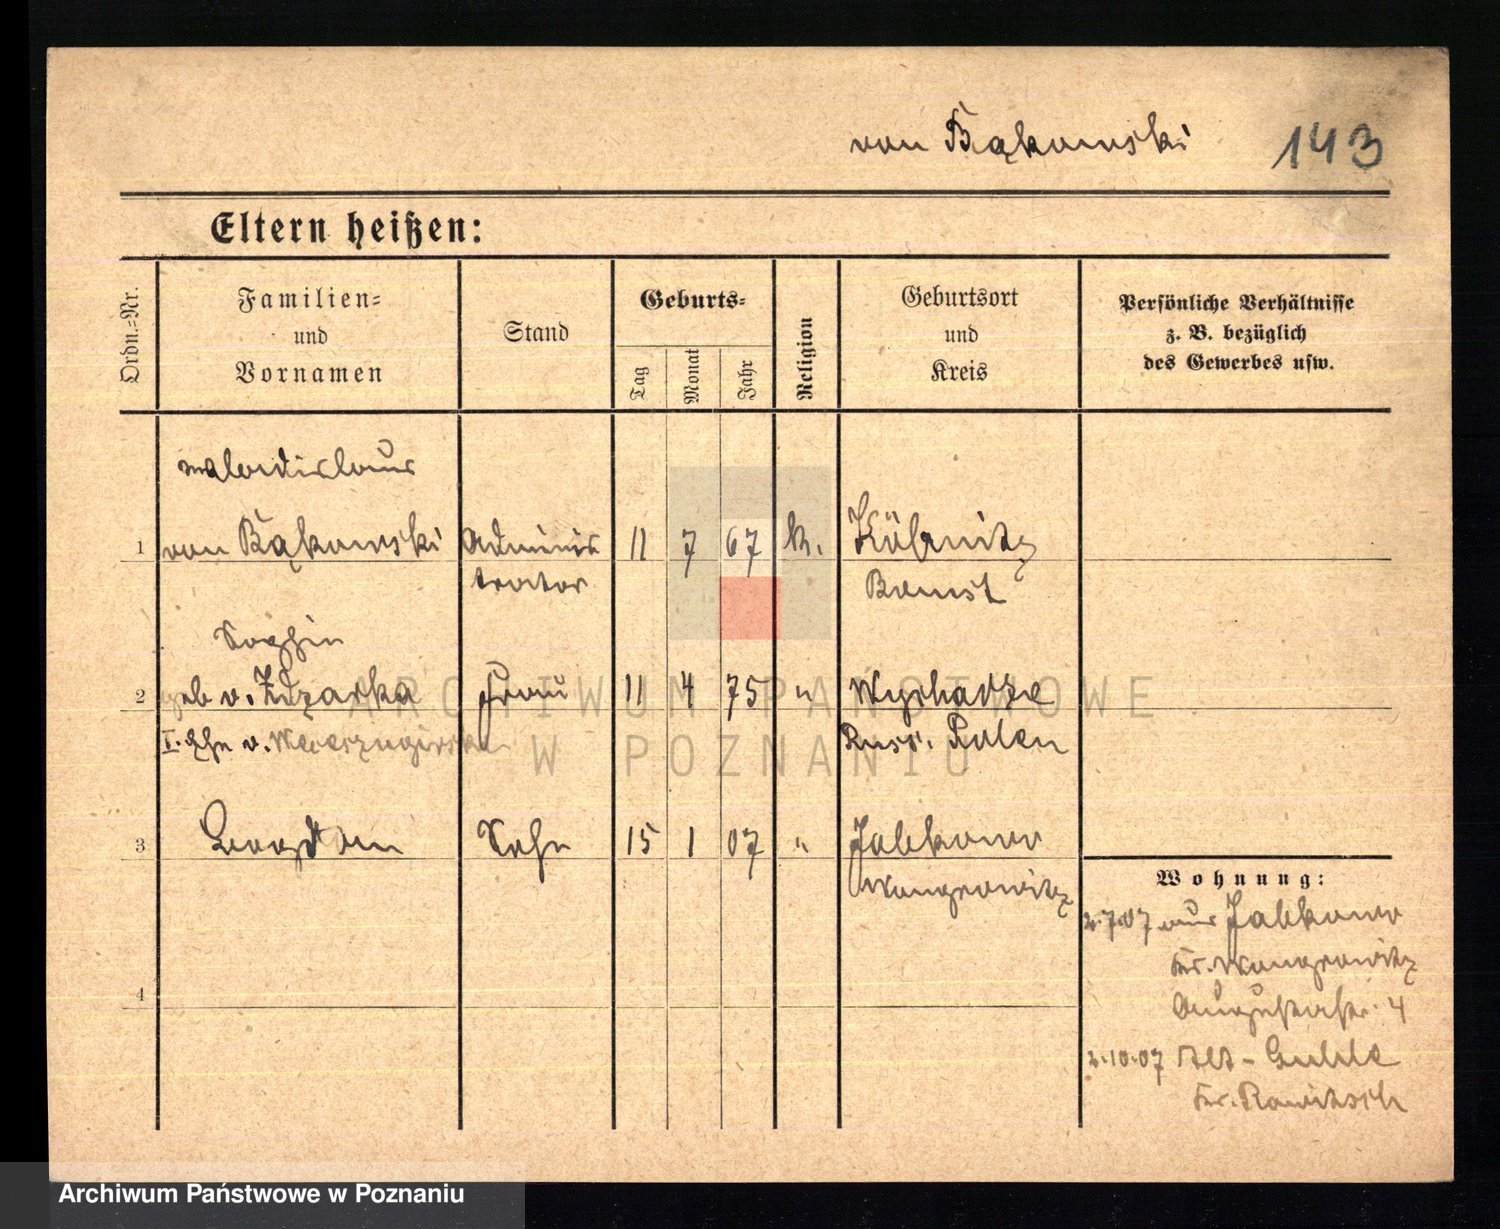 von Bąkowski 143
Eltern heißen:
Ordn.=Nr.
Familien=
und
Vornamen
Stand
Geburts=
Tag
Monat
Jahr
Religion
Geburtsort
und
Kreis
Persönliche Verhältnisse
z. B. bezüglich
des Gewerbes usw.
1 von Bąkowski Adminis 11 7 67 k. Köbnitz
trator Bomst
Sophie
2 geb v. Frau 11 4 75 "
I. Ehe v. Russ. Polen
3 Bogdan Sohn 15 1 07 " Jabkowo
Wongrowitz
4
Wohnung:
2.7.07 aus Jabkowo
Kr. Wongrowitz
Augustastr. 4
2.10.07 Alt-Guhle
Kr. Rawitsch
ARCHIWUM PAŃSTWOWE
W POZNANIU
Archiwum Państwowe w Poznaniu